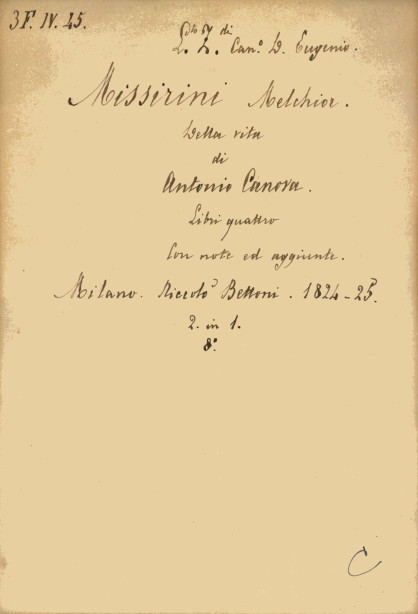 3F. IV. 25.
di
L. L. Can.º D. Eugenio.
Missirini Melchior.
Della vita
di
Antonio Canova.
Libri quattro
Con note ed aggiunte.
Milano. Niccolò Bettoni. 1824-25.
2. in 1.
8º.
C